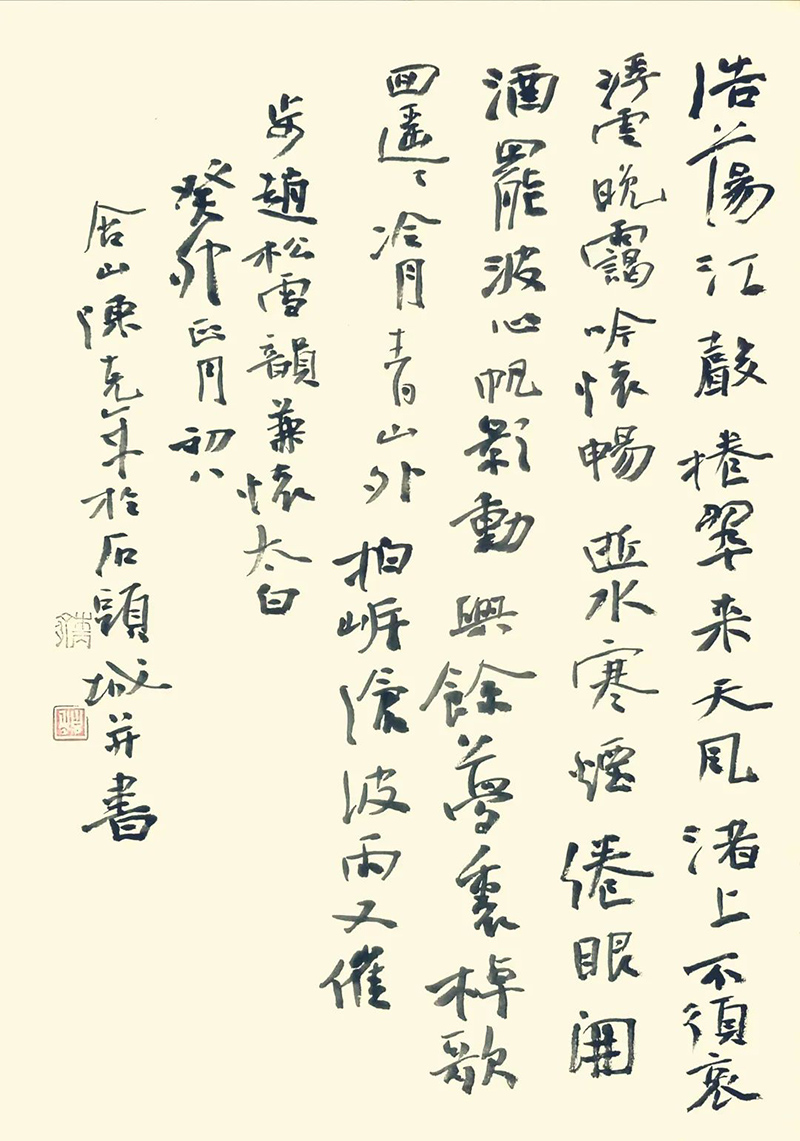 浩蕩江聲捲翠来天風渚上不須哀
浮雲晚靄吟懷暢逝水寒煙倦眼開
酒罷波心帆影動興餘夢裏棹歌
回遥々冷月青山外拍岸滄波雨又催
步趙松雪韻兼懷太白
癸卯正月初八
含山陳克年於石頭城并書